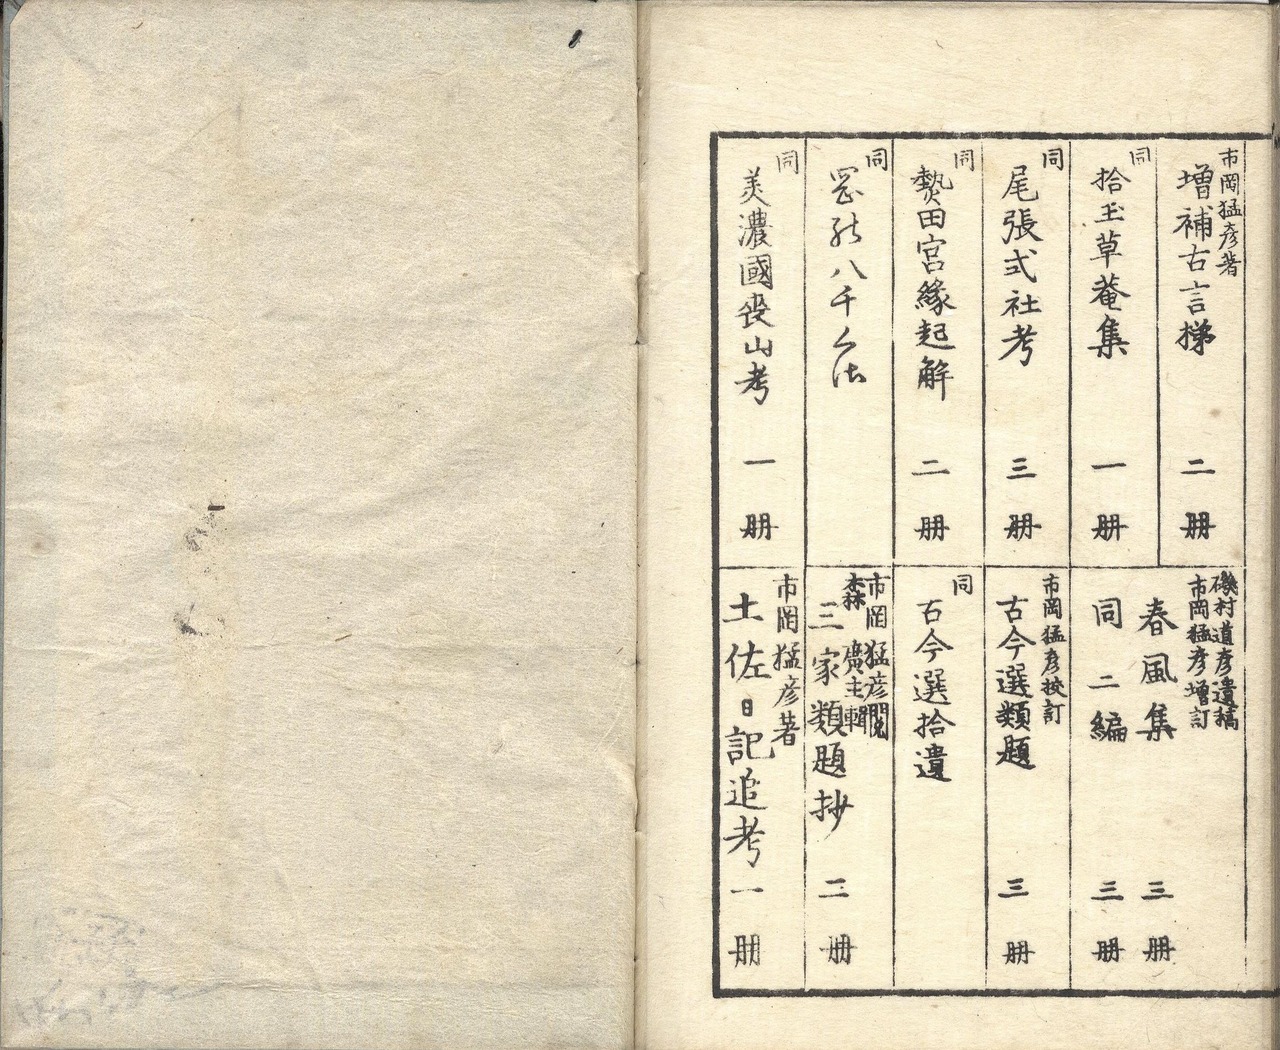 市岡猛彦著
増補古言梯 二冊
同
拾玉草菴集 一冊
同
尾張式社考 三冊
同
熱田宮縁起解 二冊
同
八千
同
美濃國喪山考 一冊
磯村道彦遺稿
市岡猛彦増訂
春風集 三冊
同二編 三冊
市岡猛彦校訂
古今選類題 三冊
同
古今選拾遺
市岡猛彦閲
森廣主輯
三家類題抄 二冊
市岡猛彦著
土佐日記追考 一冊